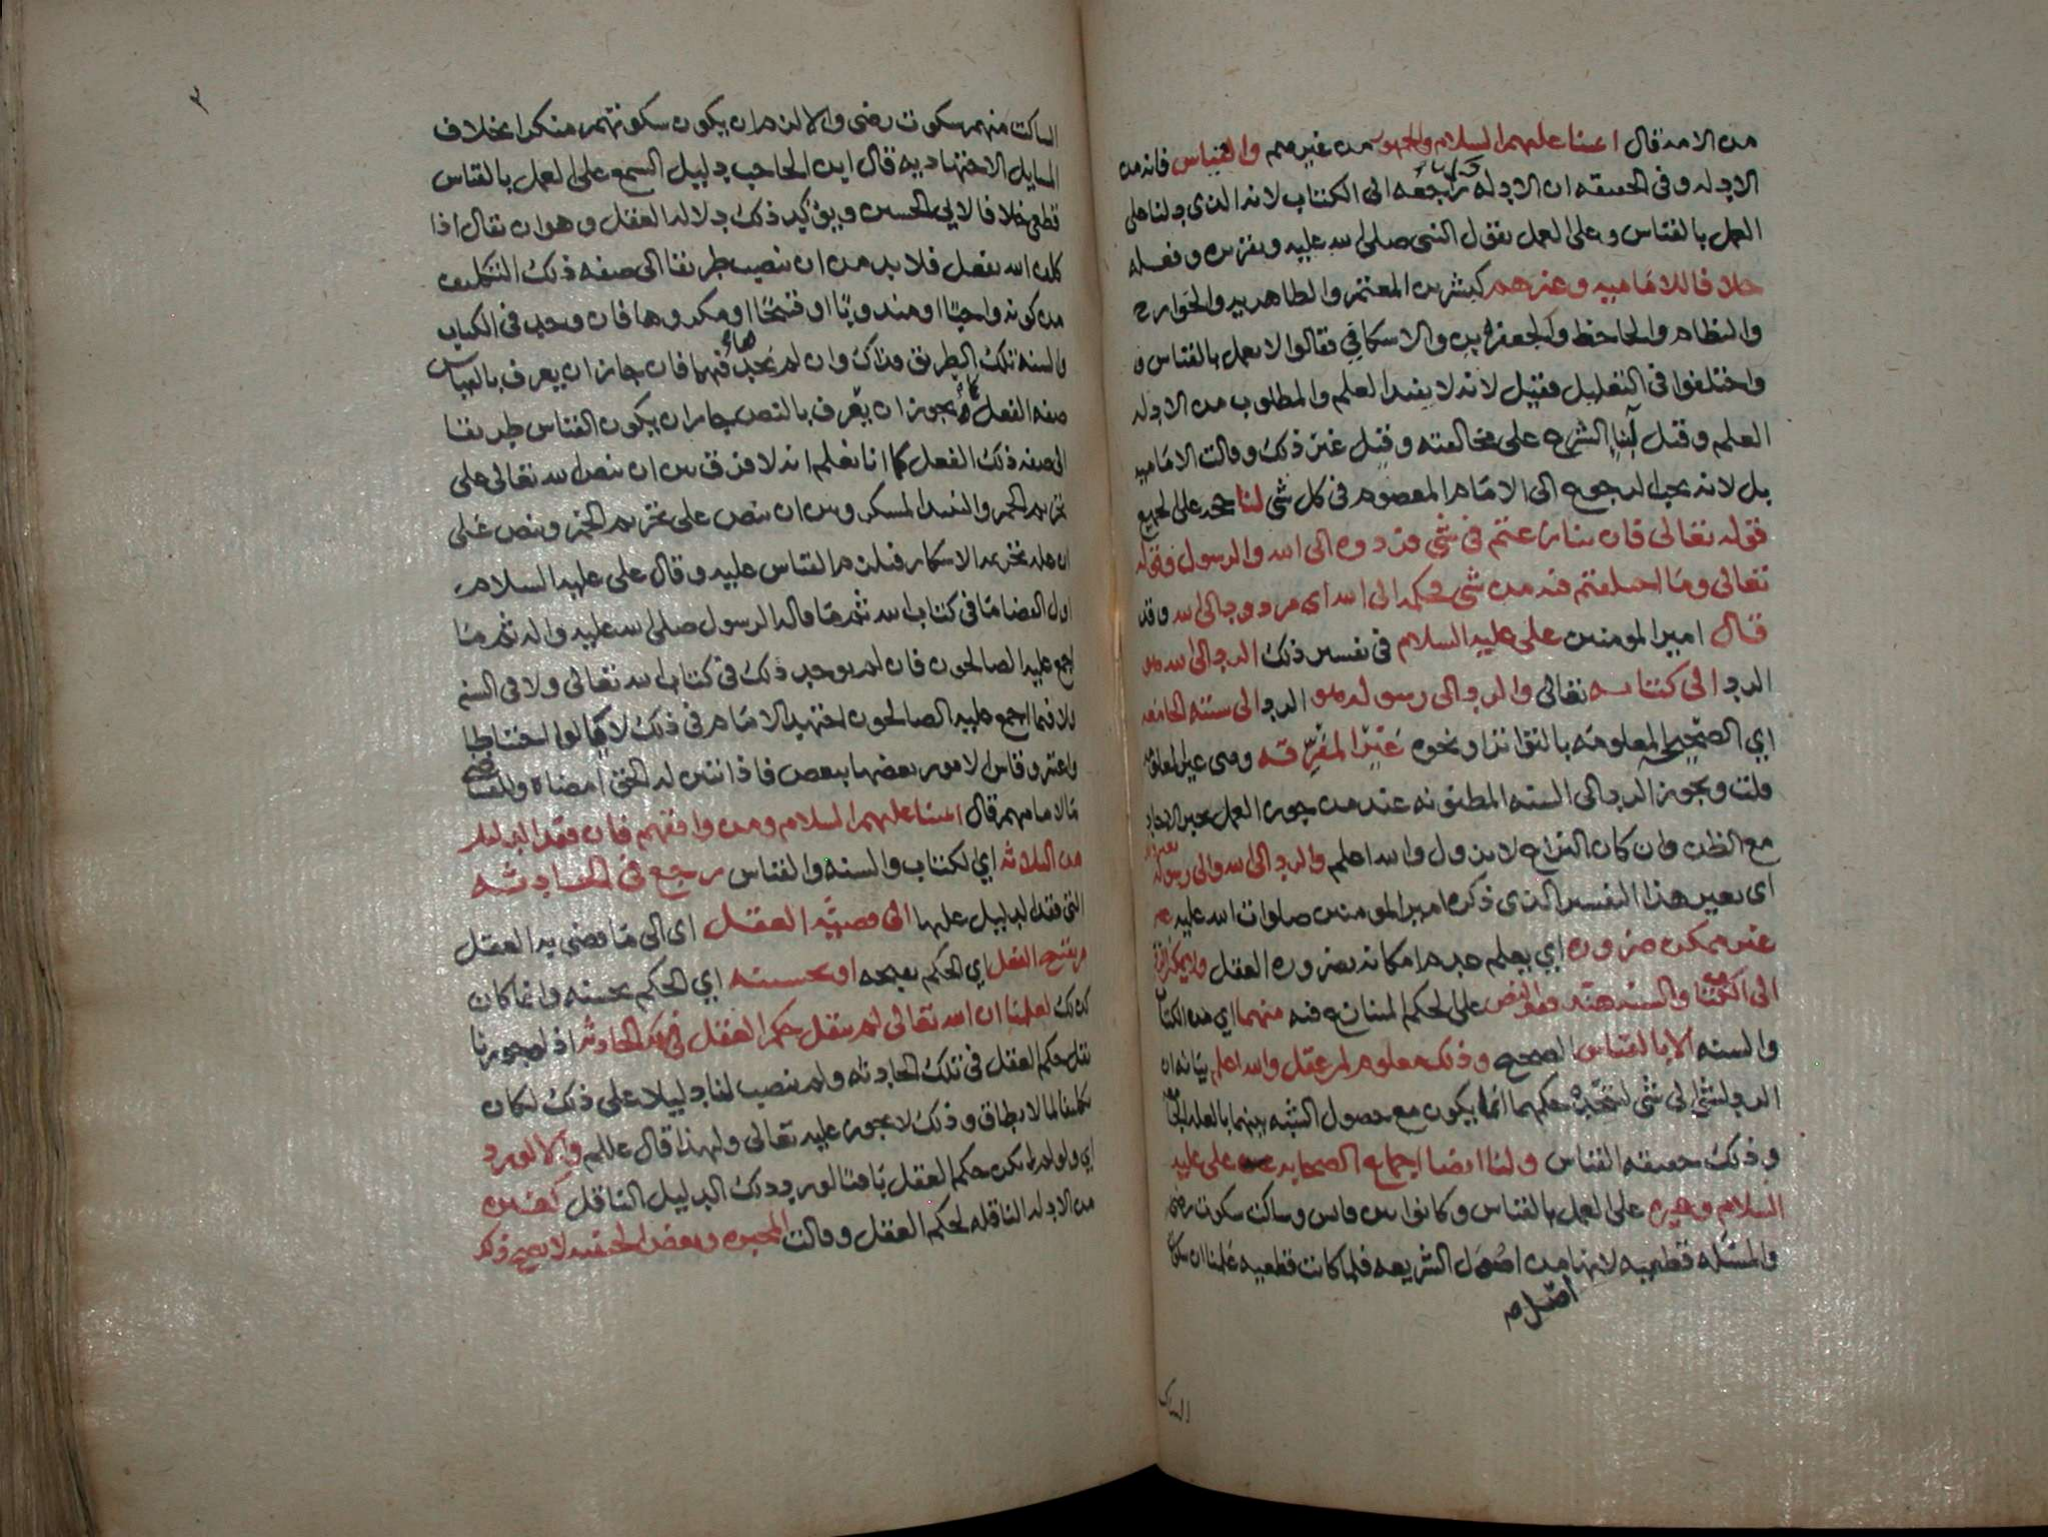 من الامة قال ائمتنا عليهم السلام والجمهور من غيرهم والقياس فانه من
الادله وفي الحقيقه ان الادله راجعه الى الكتاب لانه الذي دلنا على
العمل بالقياس وعلى العمل بقول النبي صلى الله عليه وتقريره وفعله
خلافا للاماميه وغيرهم كبشر بن المعتمر والظاهريه والخوارج
والنظام والجاحظ والجعفرين والاسكافي فقالوا لا يعمل بالقياس و
واختلفوا في التعليل فقيل لانه لا يفيد العلم والمطلوب من الادله
العلم وقيل لبنا الشرع على مخالفته وقيل غير ذلك وقالت الاماميه
بل لانه يجب الرجوع الى الامام المعصوم في كل شي لنا حجه على الجميع
قوله تعالى فان تنازعتم في شي فردوه الى الله والرسول وقوله
تعالى وما اختلفتم فيه من شي فحكمه الى الله اي مردود الى الله وقد
قال امير المومنين علي عليه السلام في تفسير ذلك الرد الى الله هو
الرد الى كتابه تعالى والرد الى رسوله هو الرد الى سنته الجامعه
اي الصحيحه المعلومه بالتواتر او نحوه غير المفرقه وهي غير المعلومه
قلت ويجوز الرد الى السنه المظنونه عند من جوز العمل بخبر الاحاد
مع الظن وان كان النزاع لا يزول والله اعلم والرد الى الله والى رسوله
اي بغير هذا التفسير الذي ذكره امير المومنين صلوات الله عليه
غير ممكن ضروره اي يعلم عدم امكانه بضروره العقل ولا يمكن الرد
الى الكتاب والسنه مع فقد النص على الحكم المتنازع فيه منهما اي من الكتاب
والسنه الا بالقياس الصحيح وذلك معلوم لمن عقل والله اعلم بيانه ان
الرد لشي الى شي لتتحد حكمهما انما يكون مع حصول الشبه بينهما بالعله
وذلك حقيقه القياس ولنا ايضا اجماع الصحابه علي عليه
السلام وغيره على العمل بالقياس وكانوا بين قايس وساكت سكوت رضى
والمسئله قطعيه لانها من اصول الشريعه فلما كانت قطعيه علمنا ان سكوت
اصل ص
الساكت
٣
الساكت منهم سكوت رضى والا لزم ان يكون سكوتهم منكرا بخلاف
المسايل الاجتهاديه قال ابن الحاجب دليل السمع على العمل بالقياس
قطعي خلافا لابي الحسين ويؤكد ذلك دلاله العقل وهو ان يقال اذا
كلف الله بفعل فلا بد من ان ينصب طريقا الى صفه ذلك التكليف
من كونه واجبا او مندوبا او قبيحا او مكروها فان وجد في الكتاب
والسنه تلك الطريق فذاك وان لم نجد فيهما فان جاز ان يعرف بالقياس
صفه الفعل كما يجوز ان يعرف بالنص جاز ان يكون القياس طريقا
الى صفه ذلك الفعل كما انا نعلم انه لا فرق بين ان ينص الله تعالى على
تحريم الخمر والنبيذ المسكر وبين ان ينص على تحريم الخمر وينص على
ان عله تحريمه الاسكار فيلزم القياس عليه وقال علي عليه السلام
اول القضا ما في كتاب الله ثم ما قاله الرسول صلى الله عليه واله ثم ما
اجمع عليه الصالحون فان لم يوجد ذلك في كتاب الله تعالى ولا في السنه
ولا فيما اجمع عليه الصالحون اجتهد الامام في ذلك لا يألوا احتياطا
واعتبر وقاس الامور بعضها ببعض فاذا تبين له الحق امضاه وللقاضي
ما لامامهم قال ائمتنا عليهم السلام ومن وافقهم فان فقد الدليل
من الثلاثه اي الكتاب والسنه والقياس رجع في الحادثه
التي فقد الدليل عليها الى قضيه العقل اي الى ما قضى به العقل
من قبح الفعل اي الحكم بقبحه او بحسنه اي الحكم بحسنه وانما كان
كذلك لعلمنا ان الله تعالى لم ينقل حكم العقل في تلك الحادثه اذ لو جوزنا
نقل حكم العقل في تلك الحادثه ولم ينصب لنا دليلا على ذلك لكان
تكليفا لما لا يطاق وذلك لا يجوز عليه تعالى ولهذا قال والا لورد
اي ولو لم يكن حكم العقل باقيا لورد ذلك الدليل الناقل كغيره
من الادله الناقله لحكم العقل وقالت المجبره وبعض الحنفيه لا يصح ذلك